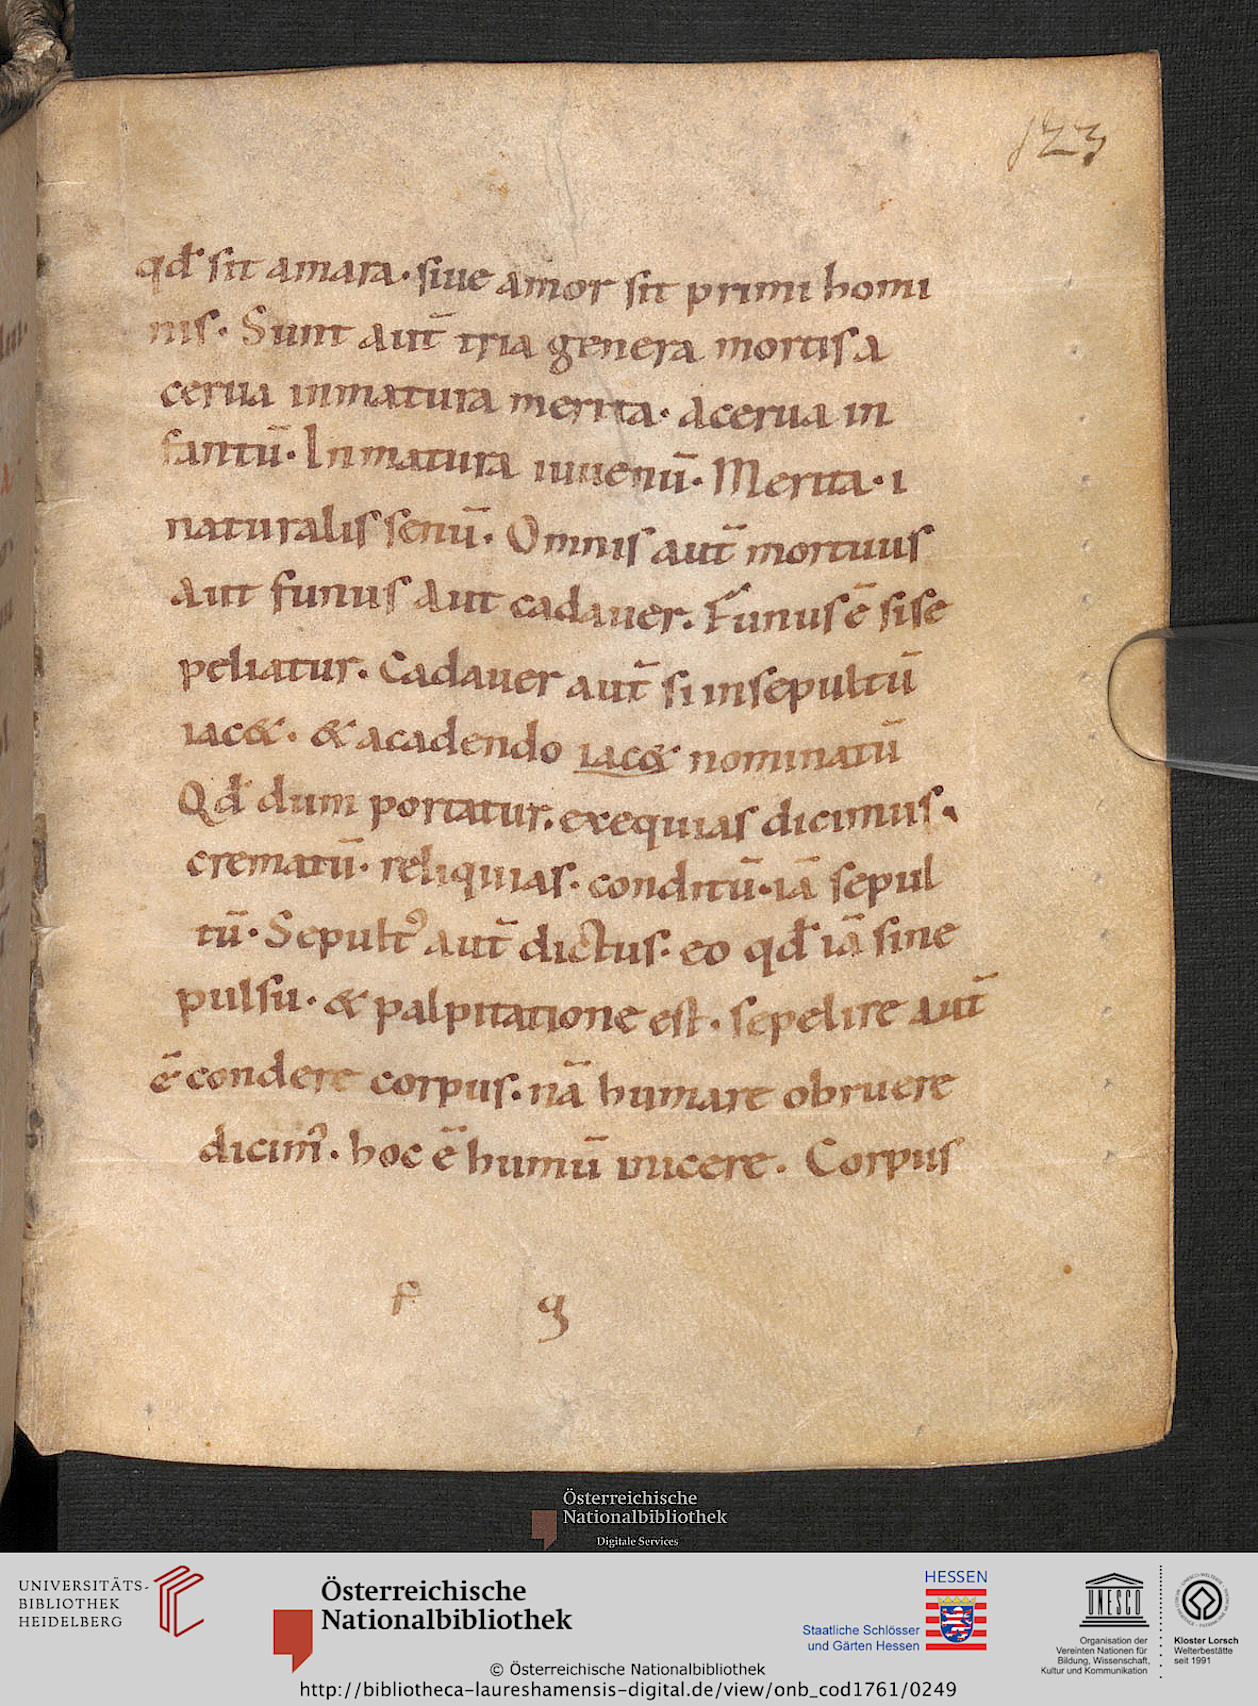 123
qd̄ sit amara · siue amor sit primi homi
nis · Sunt aut̄ tria genera mortis a
cerua inmatura merita · Acerua in
fantū · Inmatura iuuenū · Merita · i
naturalis senū · Omnis aut̄ mortuus
aut funus aut cadauer · Funus ē si se
peliatur · Cadauer aut̄ si insepultū
iac& · & acadendo iac& nominatū
Qd̄ dum portatur · exequias dicimus ·
crematū · reliquias · conditū · iā sepul
tū · Sepultꝰ aut̄ dictus · eo qd̄ iā sine
pulsu · & palpitatione est · sepelire aut̄
ē condere corpus · nā humare obruere
dicimꝰ · hoc ē humū inicere · Corpus
g
Österreichische
Nationalbibliothek
Digitale Services
UNIVERSITÄTS-
BIBLIOTHEK
HEIDELBERG
Österreichische
Nationalbibliothek
HESSEN
Staatliche Schlösser
und Gärten Hessen
UNESCO
Organisation der
Vereinten Nationen für
Bildung, Wissenschaft,
Kultur und Kommunikation
Kloster Lorsch
Welterbestätte
seit 1991
© Österreichische Nationalbibliothek
http://bibliotheca-laureshamensis-digital.de/view/onb_cod1761/0249